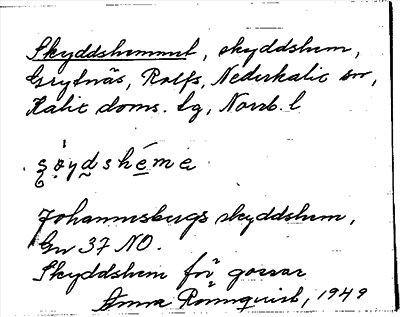 Skyddshemmet, skyddshem,
Grytnäs, Rolfs, Nederkalix sn,
Kalix doms. tg, Norrb. l.
şøyḍshéme
Johannesbergs skyddshem,
Gn 37 NO.
Skyddshem för gossar
Anna Rönnqvist, 1949